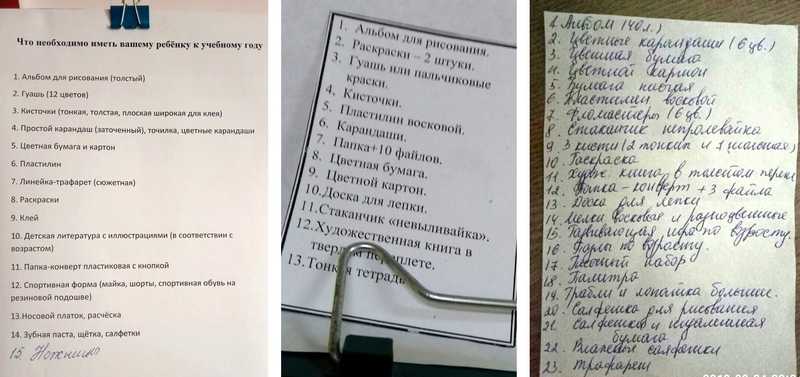 Что необходимо иметь вашему ребёнку к учебному году
1. Альбом для рисования (толстый)
2. Гуашь (12 цветов)
3. Кисточки (тонкая, толстая, плоская широкая для клея)
4. Простой карандаш (заточенный), точилка, цветные карандаши
5. Цветная бумага и картон
6. Пластилин
7. Линейка-трафарет (сюжетная)
8. Раскраски
9. Клей
10. Детская литература с иллюстрациями (в соответствии с
возрастом)
11. Папка-конверт пластиковая с кнопкой
12. Спортивная форма (майка, шорты, спортивная обувь на
резиновой подошве)
13.Носовой платок, расчёска
14. Зубная паста, щётка, салфетки
15. Ножницы
1. Альбом для рисования.
2. Раскраски – 2 штуки.
3. Гуашь или пальчиковые
краски.
4. Кисточки.
5. Пластилин восковой.
6. Карандаши.
7. Папка+10 файлов.
8. Цветная бумага.
9. Цветной картон.
10.Доска для лепки.
11.Стаканчик «невыливайка».
12.Художественная книга в
твердом переплете.
13.Тонкая тетрадь
1. Альбом (40 л.)
2. Цветные карандаши (6 цв.)
3. Цветная бумага
4. Цветной картон
5. Бумага писчая
6. Пластилин восковой
7. Фломастеры (6 цв.)
8. Стаканчик непроливайка
9. 3 кисти (2 тонких и 1 толстая)
10. Раскраска
11. Худож. книга в толстом
12. Папка-конверт + 3 файла
13. Доска для лепки
14. Мелки восковая и разноцветные
15. Развивающая игра по возрасту.
16. по возрасту.
17. Песочный набор
18. Палитра
19. Грабли и лопатка большие.
20. Салфетка для рисования
21. Салфетки и туалетная
бумага
22. Влажные салфетки
23. трафарет